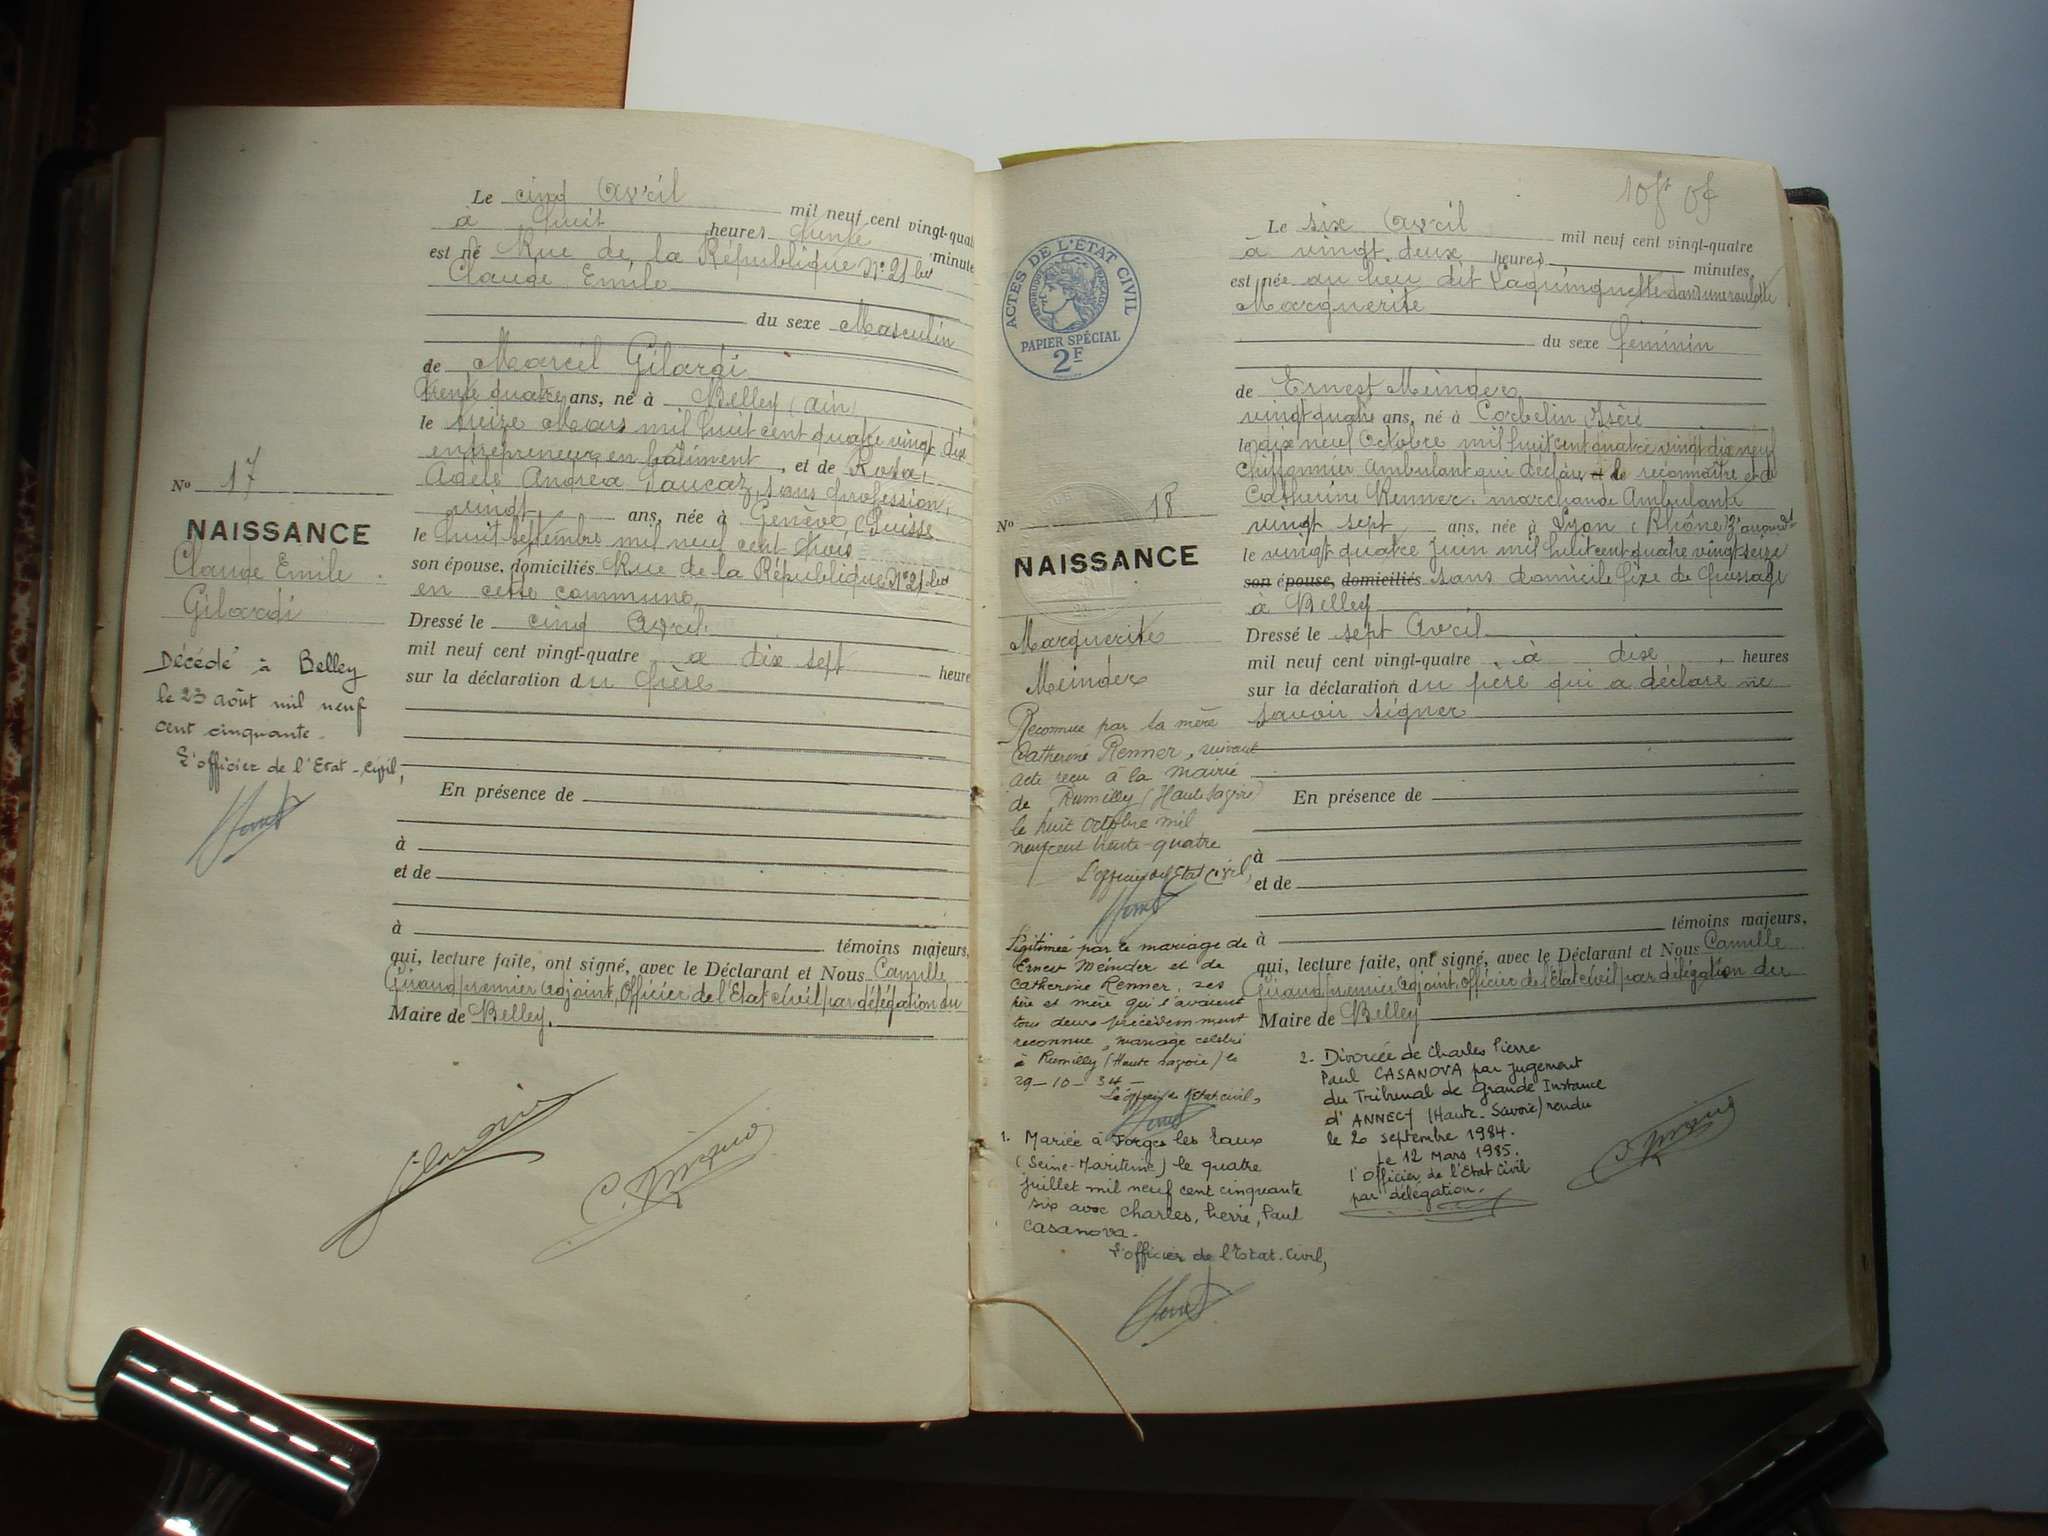 Le cinq Avril mil neuf cent vingt-quat
à huit heures trente minute
est né Rue de la République N° 21 bis
Claude Emile
du sexe Masculin
de Marcel Gilardi
trente quatre ans, né à Belley (Ain)
le seize Mars mil huit cent quatre vingt dix
entrepreneur en bâtiment, et de Rosa
Adèle Andréa sans profession,
vingt ans, née à Genève (Suisse
le huit septembre mil neuf cent trois
son épouse, domiciliés Rue de la République N° 21 bis
en cette commune
Dressé le cinq Avril
mil neuf cent vingt-quatre à dix sept heure
sur la déclaration du père
En présence de
à
et de
à témoins majeurs,
qui, lecture faite, ont signé, avec le Déclarant et Nous Camille
premier adjoint, Officier de l'Etat civil par délégation du
Maire de Belley.
N° 17
NAISSANCE
Claude Emile
Gilardi
Décédé à Belley
le 23 août mil neuf
cent cinquante.
L'officier de l'Etat-Civil,
ACTES DE L'ÉTAT CIVIL
PAPIER SPÉCIAL
2F
Le six Avril mil neuf cent vingt-quatre
à vingt deux heures minutes
est née au lieu dit dans une roulotte
Marguerite
du sexe féminin
de Ernest Meinder
vingt quatre ans, né à Corbelin Isère
le dix neuf Octobre mil huit cent quatre vingt dix neuf
chiffonnier Ambulant qui déclare le reconnaître et de
Catherine Renner, marchande Ambulante
vingt sept ans, née à Lyon (Rhône)
le vingt quatre Juin mil huit cent quatre vingt seize
son épouse, domiciliés sans domicile fixe de passage
à Belley
Dressé le sept Avril
mil neuf cent vingt-quatre à dix heures
sur la déclaration du père qui a déclaré ne
savoir signer
En présence de
à
et de
à témoins majeurs,
qui, lecture faite, ont signé, avec le Déclarant et Nous Camille
premier adjoint, Officier de l'Etat civil par délégation du
Maire de Belley
N° 18
NAISSANCE
Marguerite
Meinder
Reconnue par la mère
Catherine Renner, suivant
acte reçu à la mairie
de Rumilly (Haute Savoie)
le huit octobre mil
neuf cent trente-quatre
L'officier de l'Etat Civil,
Légitimée par le mariage de
Ernest Meinder et de
Catherine Renner, ses
père et mère qui l'avaient
tous deux précédemment
reconnue, mariage célébré
à Rumilly (Haute Savoie) le
29-10-34-
L'officier de l'Etat civil,
1. Mariée à Forges les Eaux
(Seine-Maritime) le quatre
juillet mil neuf cent cinquante
six avec Charles, Pierre, Paul
Casanova.
L'officier de l'Etat-Civil,
2. Divorcée de Charles Pierre
Paul CASANOVA par jugement
du Tribunal de Grande Instance
d'ANNECY (Haute-Savoie) rendu
le 20 septembre 1984.
Le 12 Mars 1985.
l'Officier de l'Etat Civil
par délégation.